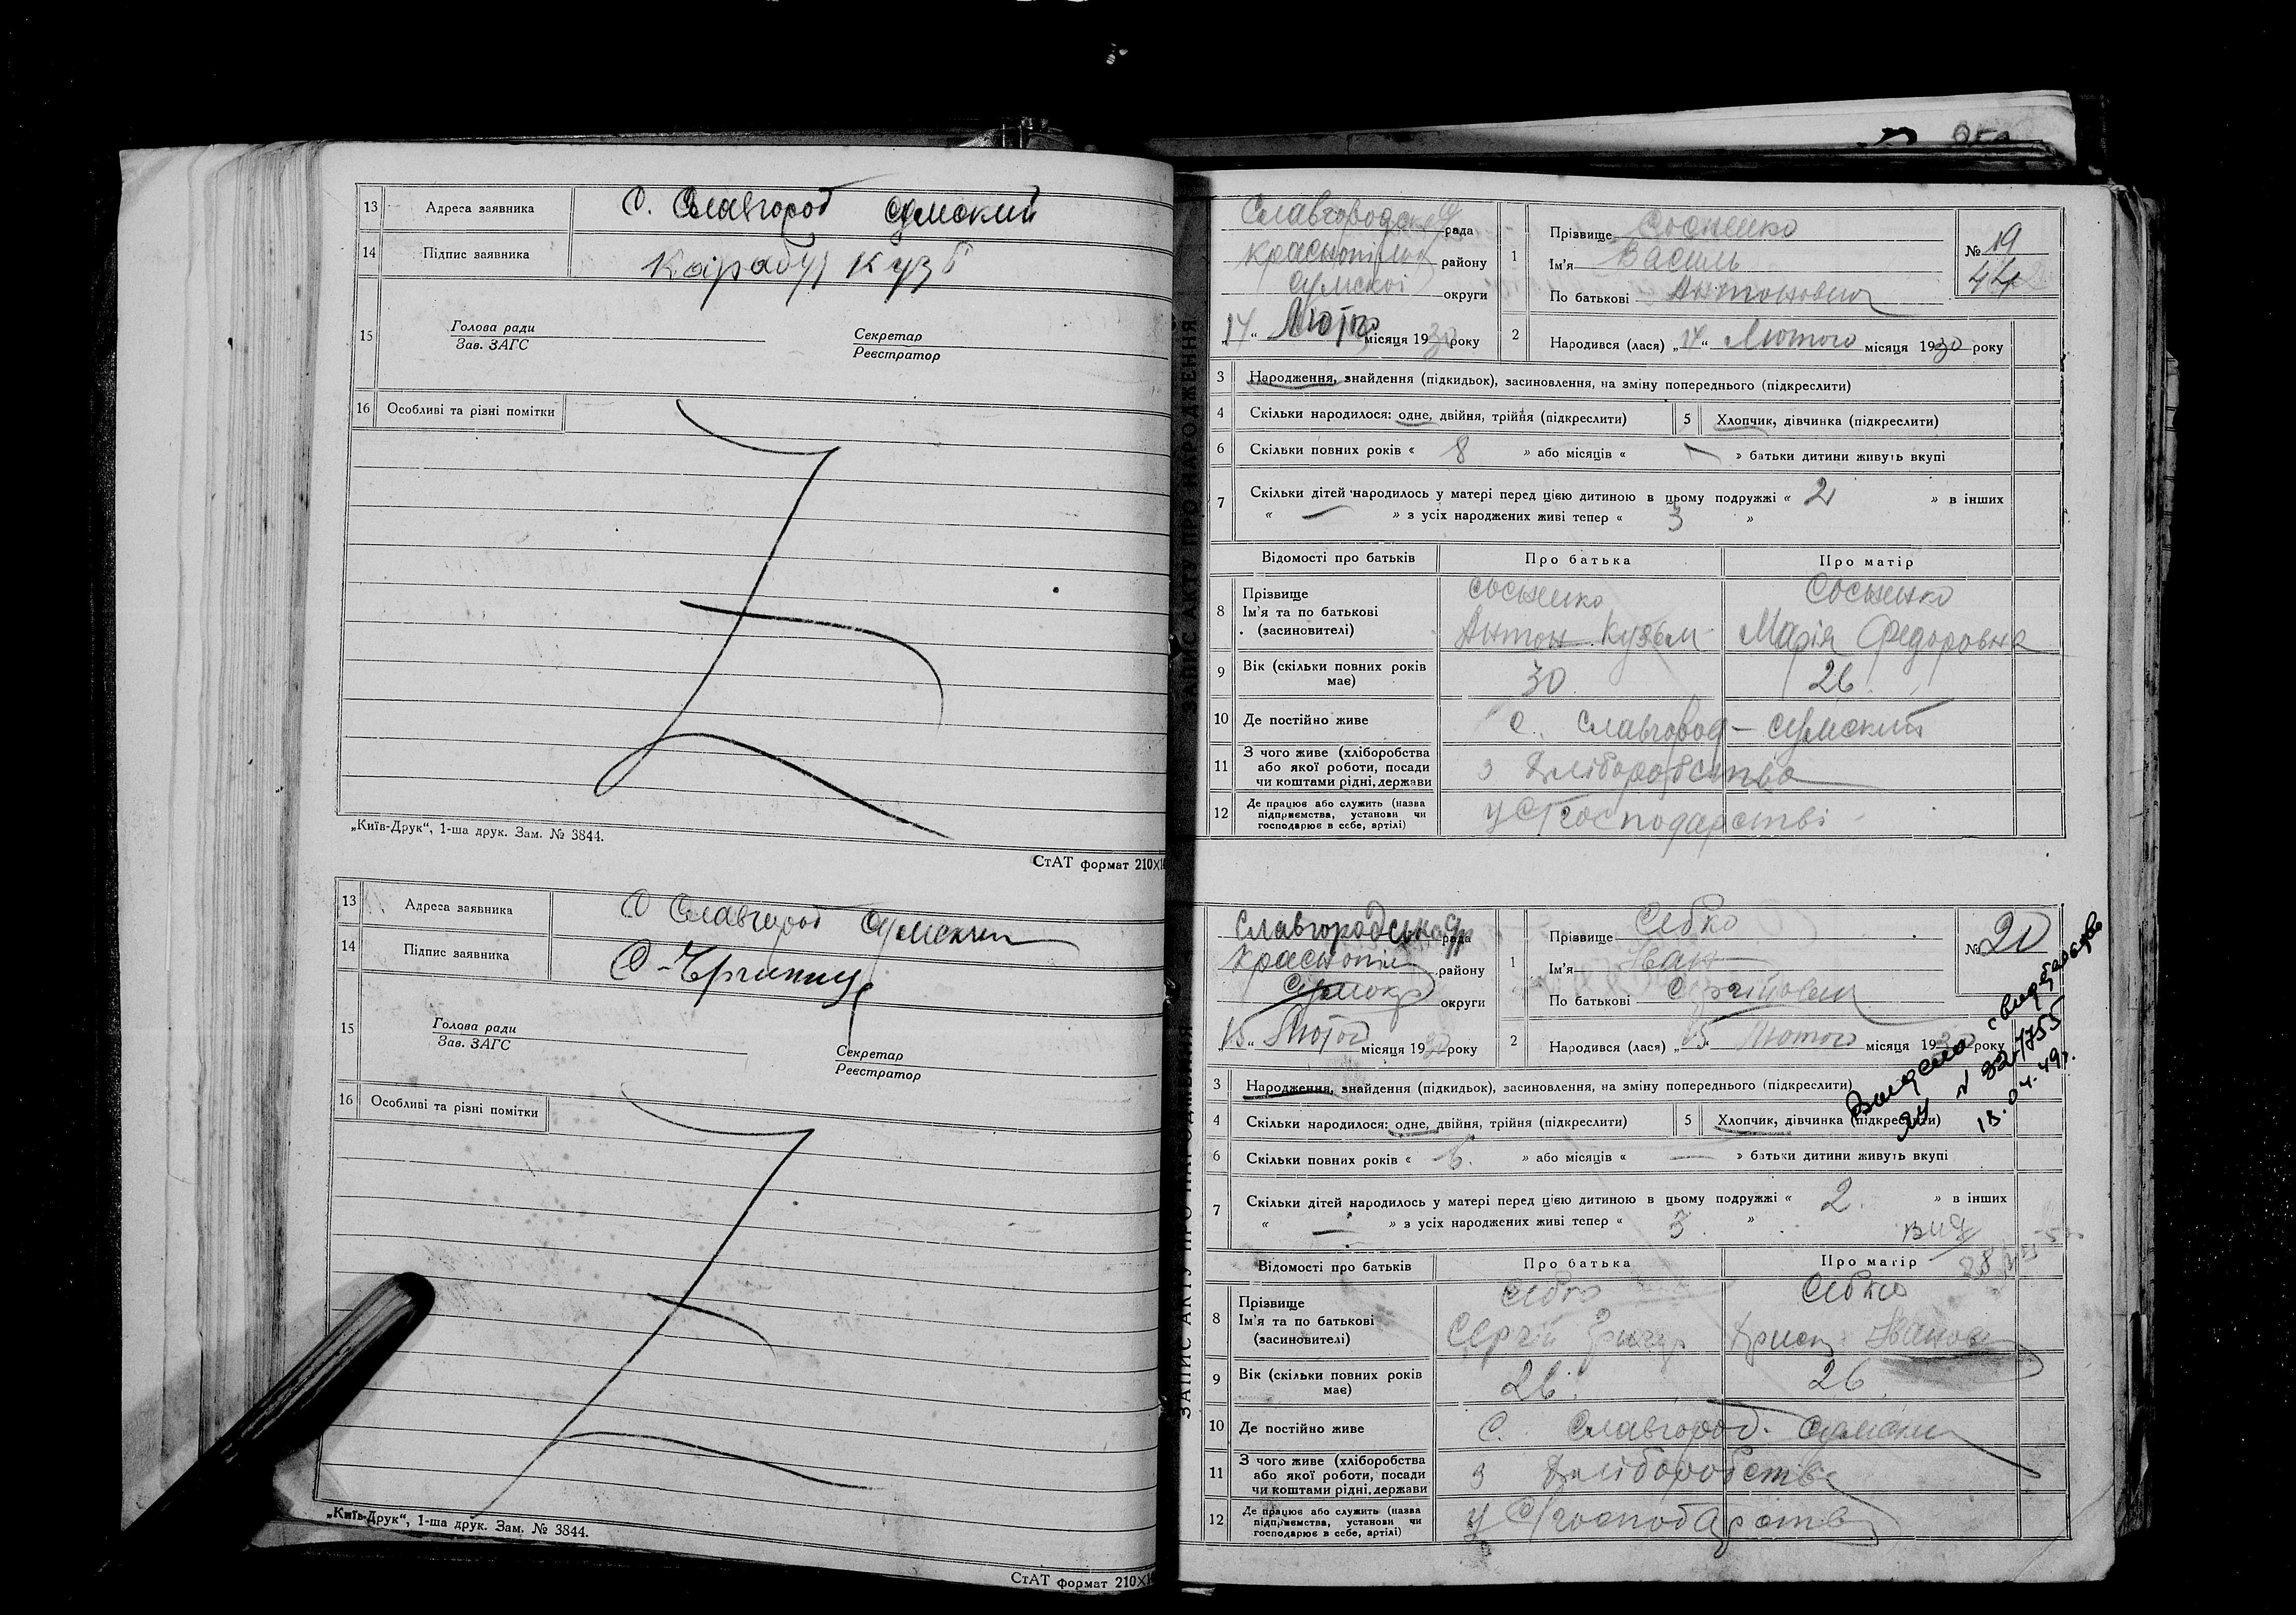 13 Адреса заявника С. Славгород Сумский
14 Підпис заявника
15 Голова ради
Зав. ЗАГС
Секретар
Реєстратор
16 Особливі та різні помітки
„Київ-Друк“, 1-ша друк. Зам. № 3844.
СтАТ формат 210×1
13 Адреса заявника С Славгород Сумский
14 Підпис заявника
15 Голова ради
Зав. ЗАГС
Секретар
Реєстратор
16 Особливі та різні помітки
„Київ-Друк“, 1-ша друк. Зам. № 3844.
СтАТ формат 210×1
ЗАПИС АКТУ ПРО НАРОДЖЕННЯ
рада
Краснопільск району
Сумскої округи
„14“ Лютого місяця 1930 року
1 Прізвище Сосненко
Ім'я Василь
По батькові Антонович
№ 19
44
2 Народився (лася) „14“ Лютого місяця 1930 року
3 Народження, знайдення (підкидьок), засиновлення, на зміну попереднього (підкреслити)
4 Скільки народилося: одне, двійня, трійня (підкреслити)
5 Хлопчик, дівчинка (підкреслити)
6 Скільки повних років « 8 » або місяців « — » батьки дитини живуть вкупі
7 Скільки дітей народилось у матері перед цією дитиною в цьому подружжі « 2 » в інших
« — » з усіх народжених живі тепер « 3 »
Відомості про батьків Про батька Про матір
8 Прізвище Сосненко Сосненко
Ім'я та по батькові Антон Кузьм Марія Федоровна
(засиновителі)
9 Вік (скільки повних років має) 30 26
10 Де постійно живе с. Славгород - Сумский
11 З чого живе (хліборобства
або якої роботи, посади
чи коштами рідні, держави з Хліборобства
12 Де працює або служить (назва
підприємства, установи чи
господарює в себе, артілі) у С/господарстві
ЗАПИС АКТУ ПРО НАРОДЖЕННЯ
Славгородська рада
Краснопіл району
округи
„15“ Лютого місяця 1930 року
1 Прізвище Себко
Ім'я Іван
По батькові Сергійович
№ 20
2 Народився (лася) „15“ Лютого місяця 1930 року
3 Народження, знайдення (підкидьок), засиновлення, на зміну попереднього (підкреслити)
4 Скільки народилося: одне, двійня, трійня (підкреслити)
5 Хлопчик, дівчинка (підкреслити)
6 Скільки повних років « » або місяців « — » батьки дитини живуть вкупі
7 Скільки дітей народилось у матері перед цією дитиною в цьому подружжі « 2 » в інших
« — » з усіх народжених живі тепер « 3 »
Відомості про батьків Про батька Про матір
8 Прізвище Себко Себко
Ім'я та по батькові Сергій Григор Іванов
(засиновителі)
9 Вік (скільки повних років має) 26 26
10 Де постійно живе С. Славгород Сумский
11 З чого живе (хліборобства
або якої роботи, посади
чи коштами рідні, держави з Хліборобства
12 Де працює або служить (назва
підприємства, установи чи
господарює в себе, артілі) у С/господарстві